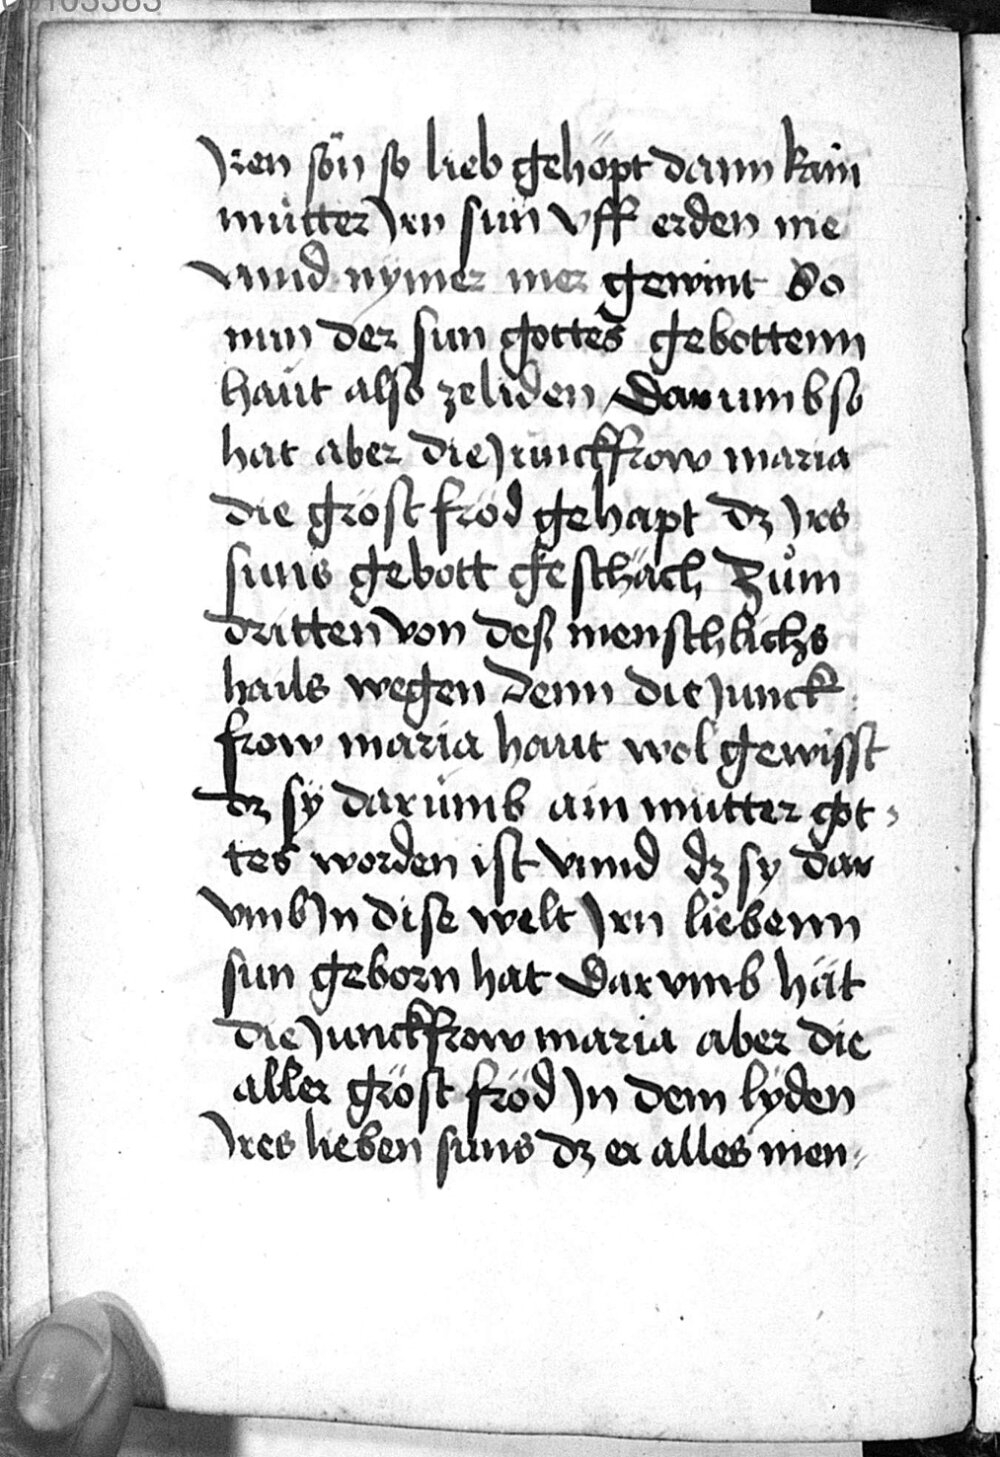 Jren sön so lieb gehöpt dann kain
mütter Jrn sun vff erden nie
vnnd nymer mer gewint So
nun der sun gottes gebottenn
haüt also ze liden Dar umb so
hat aber die Junckfrow maria
die gröst fröd gehapt dz Jrs
suns gebott geschäch Zům
dritten von deß menschlichs
hails wegen Denn die Junck
frow maria haut wol gewisst
dz sy darumb ain mutter got-
tes worden ist vnnd dz sy dar
vmb Jn dise welt Jrn liebenn
sun geborn hat Dar vmb hät
die Junckfrow maria aber die
aller gröst fröd Jn dem lyden
Jres lieben suns dz er alles men-